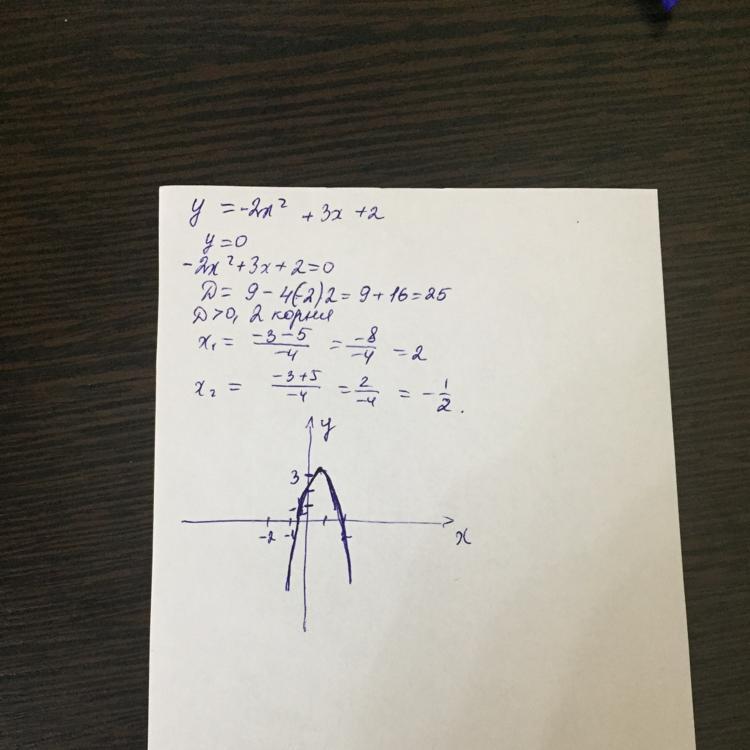 y = -2x² + 3x + 2
y = 0
-2x² + 3x + 2 = 0
D = 9 - 4(-2)2 = 9 + 16 = 25
D > 0, 2 корня
x₁ = \frac{-3-5}{-4} = \frac{-8}{-4} = 2
x₂ = \frac{-3+5}{-4} = \frac{2}{-4} = -\frac{1}{2}.
y
3
-2 -1 2
x